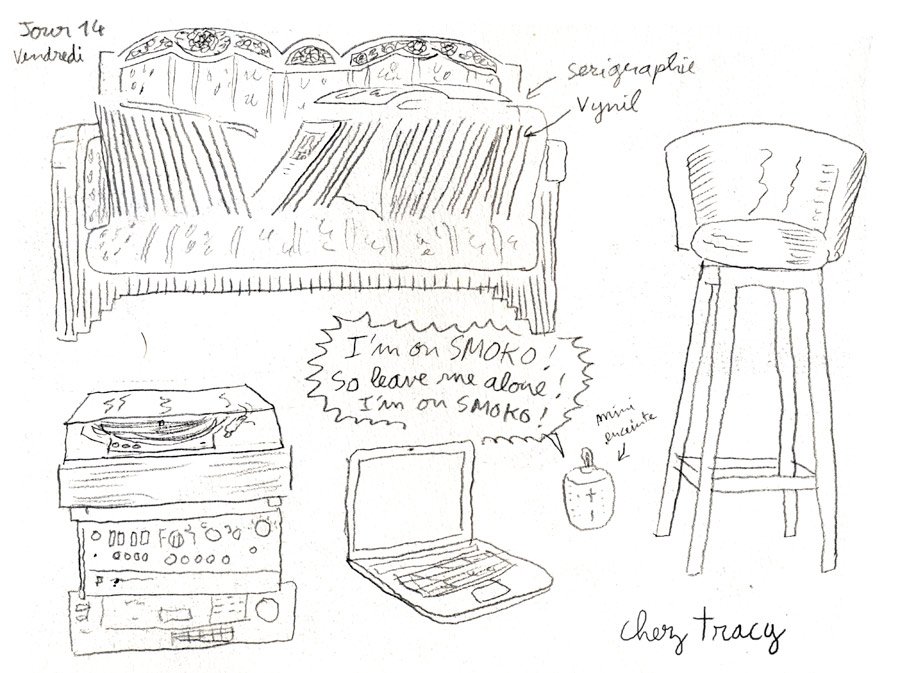 Jour 14
Vendredi
serigraphie
Vynil
I'm on SMOKO!
So leave me alone!
I'm on SMOKO!
mini
enceinte
chez tracy